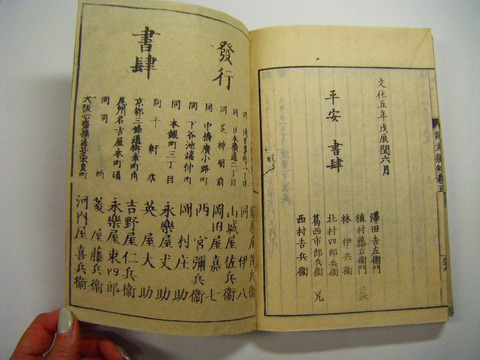 文化五年戊辰閏六月
平安 書肆
澤田吉左衛門
植村藤右衛門
林 伊兵衛
北村四郎兵衛
葛西市郎兵衛
西村吉兵衛
發行
書肆
同 日本橋通二丁目 山城屋佐兵衛
同 芝神明前 岡田屋嘉七
同 中橋廣小路町 西宮彌兵衛
同 下谷池端仲町 岡村庄助
同 本銀町二丁目 永樂屋丈助
同 十軒店 英大助
京都三條通 吉野屋仁兵衛
尾州名古屋本町通 永樂屋東四郎
同 菱屋藤兵衛
大阪心齋橋 河内屋喜兵衛